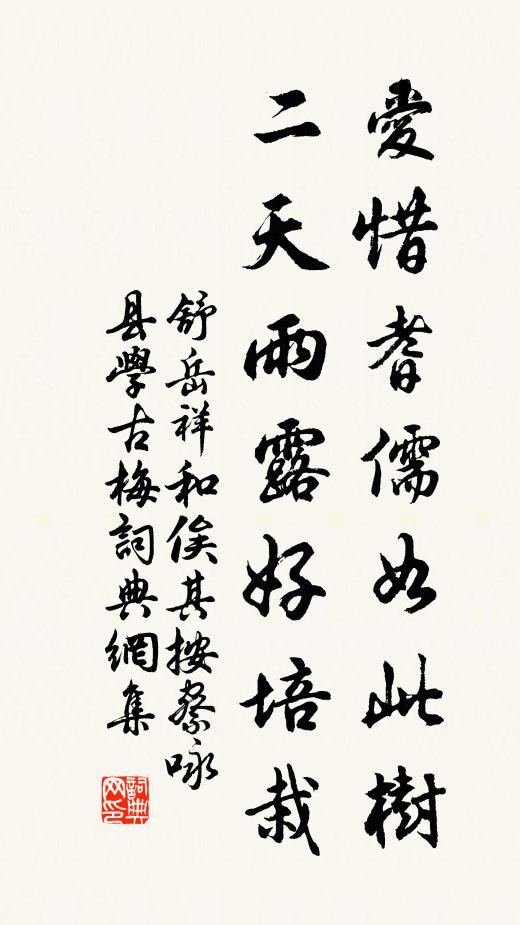 愛惜耆儒如此樹
二天雨露好培栽
舒岳祥和俟其按察咏
县學古梅詞典網集
詞典網印